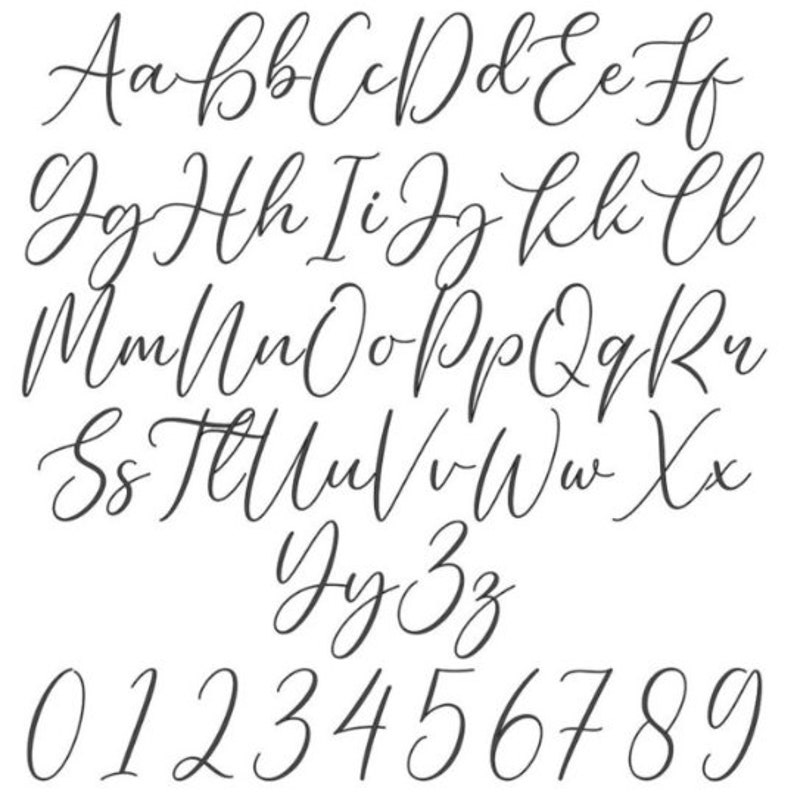 AaBbCcDdEeFf
GgHhIiJjKkLl
MmNnOoPpQqRr
SsTtUuVvWwXx
YyZz
0123456789